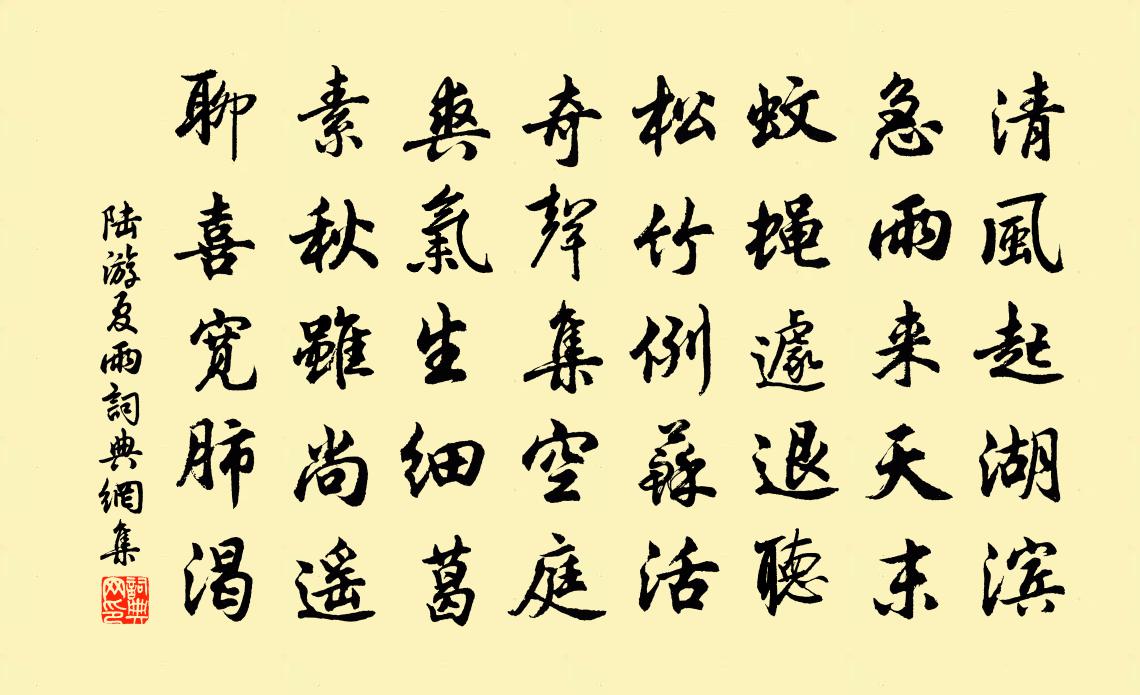 清風起湖滨
急雨来天末
蚊蝇遽退聽
松竹例蘇活
奇聲集空庭
爽氣生细葛
素秋雖尚遥
聊喜宽肺渴
陆游夏雨詞典網集
詞典網印